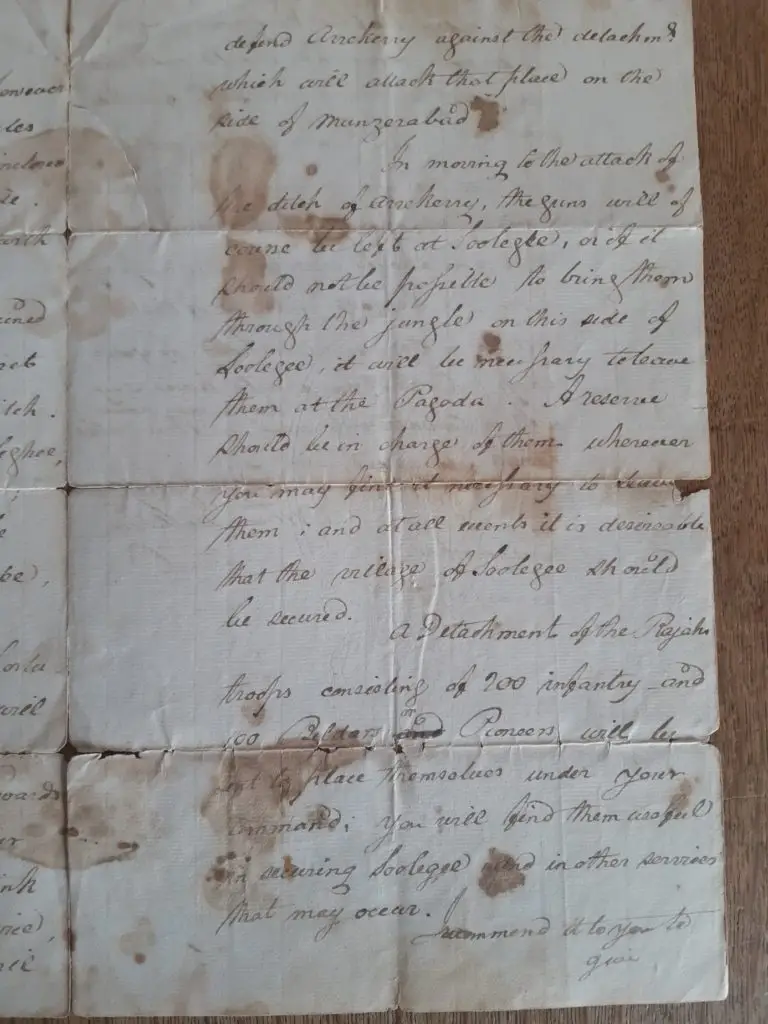 however
les
.
with
ined
ret
itch.
eghee,
;
e
be),
will
wards
ur
ink
defend Arrekerry against the detachmt.
which will attack that place on the
side of Munzerabad
In moving to the attack of
the ditch of Arrekerry, the guns will of
course be left at Soolegee, or if it
should not be possible to bring them
through the jungle on this side of
Soolegee, it will be necessary to leave
them at the Pagoda. A reserve
should be in charge of them wherever
you may find it necessary to leave
them; and at all events it is desireable
that the village of Soolegee should
be secured.
A Detachment of the Rajahs
troops consisting of 200 infantry and
100 Beldars or Pioneers will be
sent to place themselves under your
command; you will find them useful
in securing Soolegee and in other services
that may occur.
I recommend it to you to
give